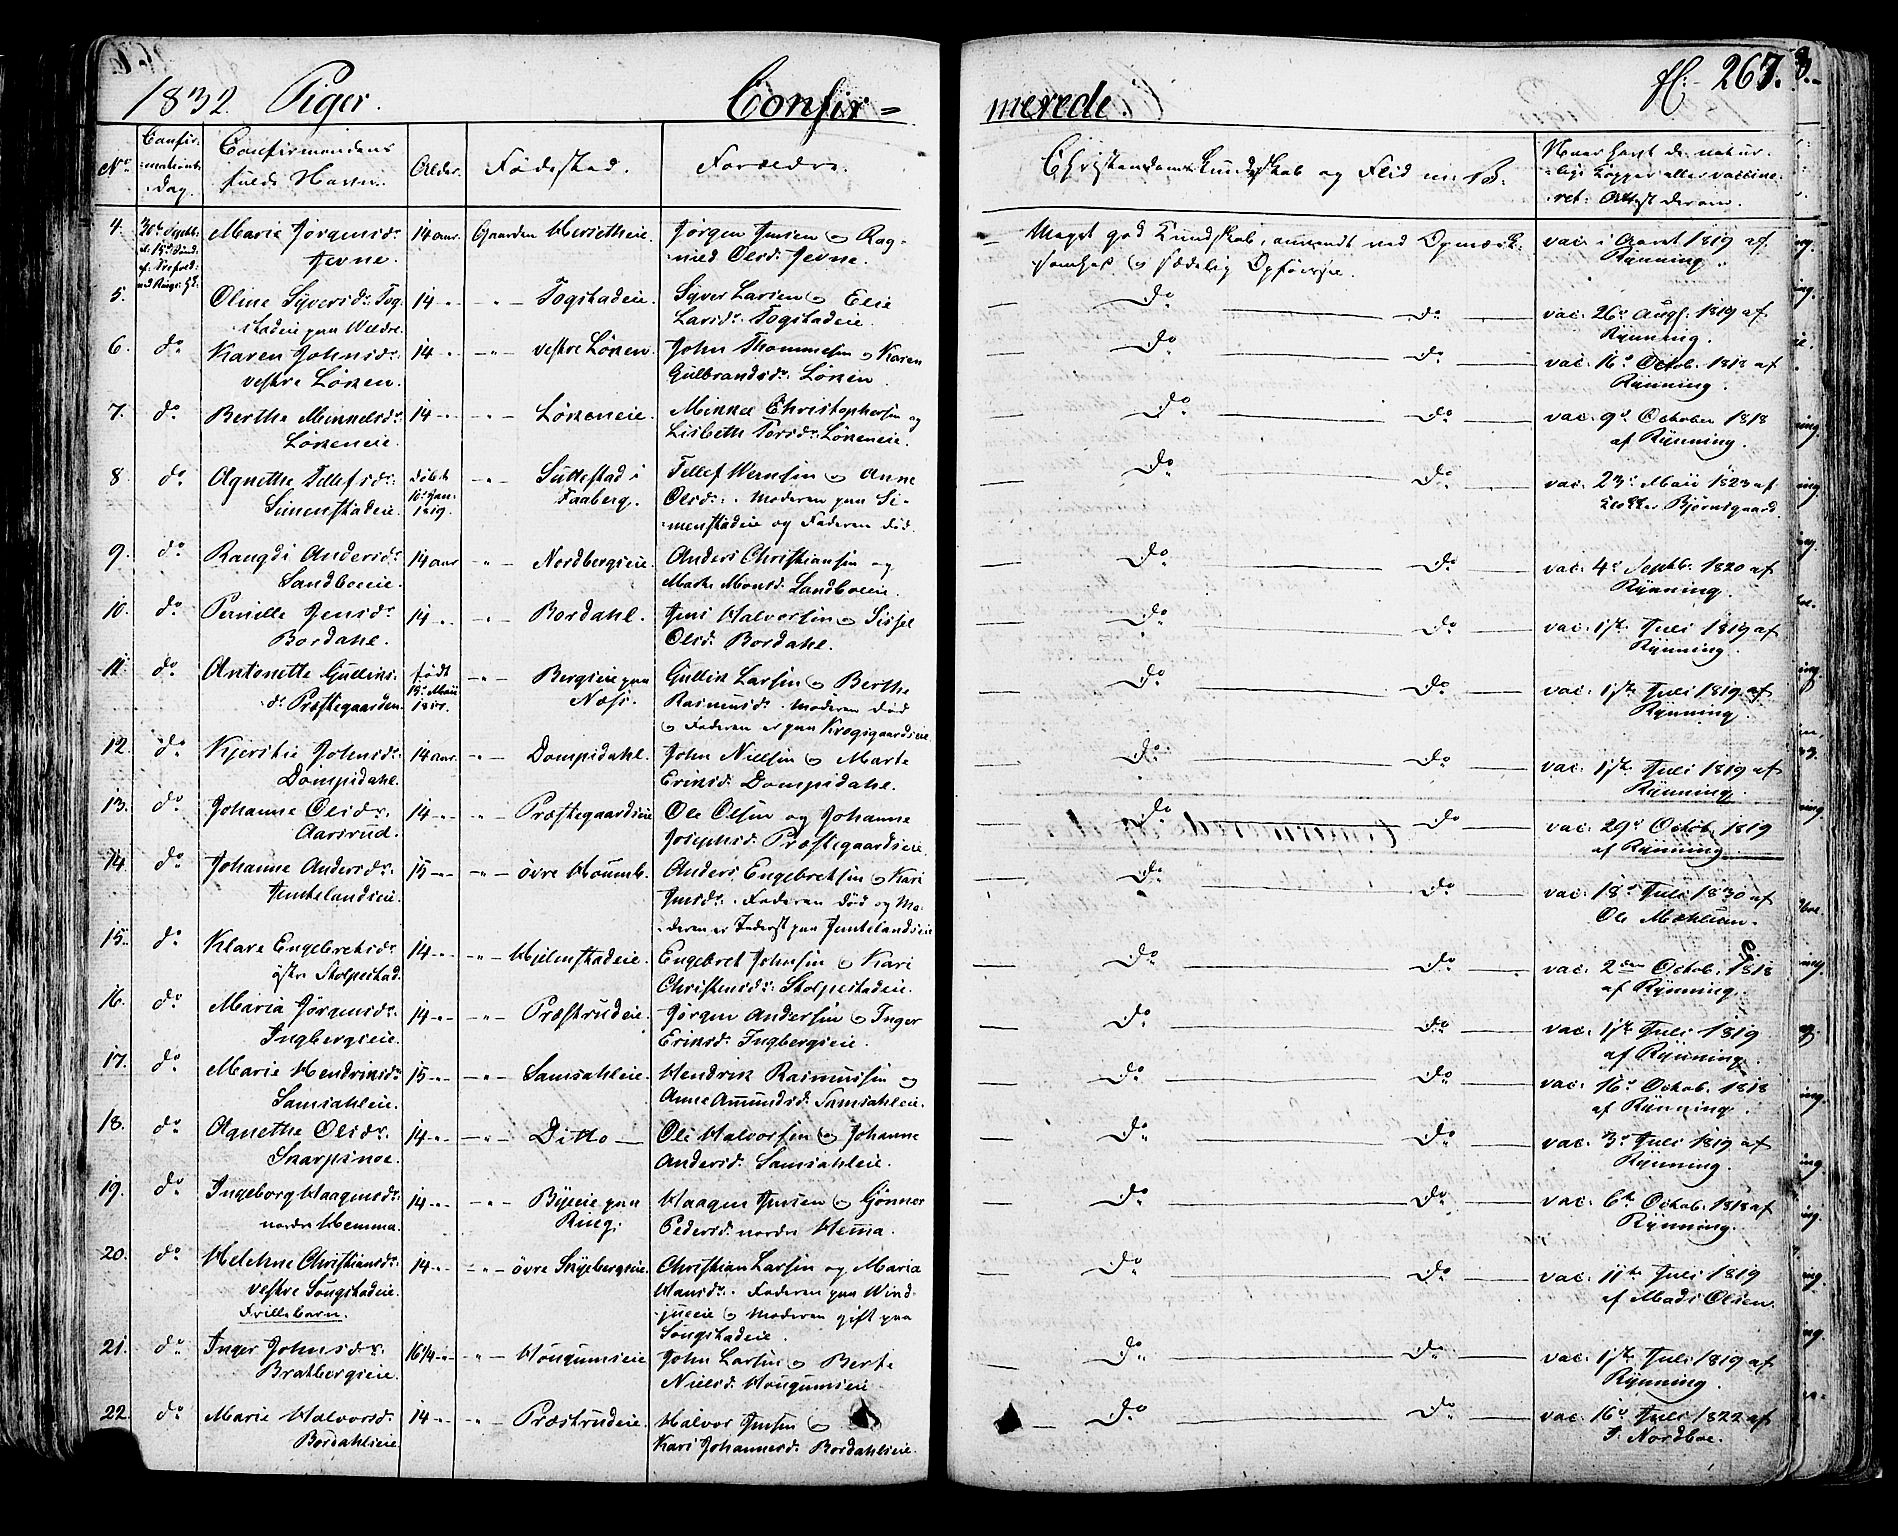 1832. Piger.
Confir=
merede.
fl: 267.
No
Confir-
mations
Dag.
Confirmandens
fulde Navn.
Alder.
Fødested.
Forældre.
Christendoms Kundskab og Flid m: B:
Naar havt de natur-
lige Kopper eller vaccine-
ret: Attest derom.
4.
Marie Jørgensdr
Jevne.
14 aar.
Gaarden Mersetheie.
Jørgen Jensen og Rag-
nild Olsdr Jevne.
Meget god Kundskab, anvendt ved Opmærk-
somhed og sædelig Opførsel.
vac: i Aaret 1819 af
Rÿnning.
5.
Oline Syversdr Tog-
stadeie paa Veldre.
14 -"-
-"- Togstadeie.
Syver Larsen og Elie
Larsdr Togstadeie.
Do Do
vac. 26de Aug: 1819 af
Rÿnning.
6. do
Karen Johnsdr
vestre Løken.
14 -"-
-"- vestre Løken.
John Thommesen og Karen
Gulbrandsdr Løken.
Do Do
vac. 16de Octob. 1818 af
Rÿnning.
7. do
Berthe Mikkelsdr
Løkeneie.
14 -"-
-"- Løkeneie.
Mikkel Christophersen og
Lisbeth Persdr Løkeneie.
Do Do
vac. 9de October 1818
af Rÿnning.
8. do
Agnethe Tellefsdr
Simenstadeie.
Døbt
10 Jan:
1819.
-"- Suttestad i
Faaberg.
Tellef Wernsen og Anne
Olsdr. Moderen paa Si-
menstadeie og Faderen død.
Do Do
vac. 23de Maii 1823 af
Klokker Bjørnsgaard.
9. do
Rangdi Andersdr
Sandboeie.
14 aar
-"- Nordbergseie.
Anders Christiansen og
Marte Monsdr Sandboeie.
Do Do
vac. 4de Septb: 1820 af
Rÿnning.
10. do
Pernille Jensdr
Bordahl.
14 -"-
-"- Bordahl.
Jens Halvorsen og Sissel
Olsd. Bordahl.
Do Do
vac. 17de Juli 1819 af
Rÿnning.
11. do
Antonette Gulliks-
dr Præstegaarden
født
13de Maii
-"- Bergseie paa
Næs.
Gullik Larsen og Berthe
Rasmusdr. Moderen død
og Faderen er paa Krogsgaardseie.
Do Do
vac. 17de Juli 1819. af
Rÿnning.
12. do
Kjerstie Johnsdr
Dompidahl.
14 aar.
-"- Dompidahl.
John Nielsen og Marte
Eriksdr Dompidahl.
Do Do
vac. 17de Juli 1819 af
Rÿnning.
13. do
Johanne Olsdr
Aarsrud.
14 -"-
-"- Præstegaardseie
Ole Olsen og Johanne
Josephsd: Præstegaardseie.
Do Do
vac. 29de Octob. 1819
af Rÿnning.
14. do
Johanne Andersdr
Jemtelandseie.
15 -"-
-"- øvre Houmb.
Anders Engebretsen og Kari
Jensdr. Faderen død og Mo-
deren er Inderst paa Jemtelandseie
Do Do
vac. 18de Juli 1830 af
Ole Mæhlum.
15. do
Klare Engebretsdr
østre Stolpestad.
14 -"-
-"- Hjelmstadeie.
Engebret Johnsen og Kari
Christensdr: Stolpestadeie.
Do Do
vac. 2den Octob. 1818
af Rÿnning.
16. do
Maria Jørgensdr
Ingbergseie.
14 -"-
-"- Præstrudeie.
Jørgen Andersen og Inger
Eriksdr Ingbergseie.
Do Do
vac. 17de Juli 1819
af Rÿnning.
17. do
Marie Hendriksdr
Samsahleie.
15 -"-
-"- Samsahleie.
Hendrik Rasmussen og
Anne Amundsd. Samsahleie.
Do Do
vac. 16de Octob. 1818
af Rÿnning.
18. do
Agnethe Olsdr
Skarpsnoe.
14 -"-
-"- Ditto
Ole Halvorsen og Johanne
Andersdr Samsahleie.
Do Do
vac. 3de Juli 1819 af
Rÿnning.
19. do
Ingeborg Haagensdr
nordre Hemma.
14 -"-
-"- Byeeie paa
Ring.
Haagen Jensen og Gønner
Pedersd. nordre Hema.
Do Do
vac. 6te Octob. 1818 af
Rÿnning.
20. do
Helehne Christiansdr
vestre Sougstadeie.
Frillebarn.
14 -"-
-"- øvre Skyebergseie.
Christian Larsen og Maria
Hansdr. Faderen paa Wind-
jueeie og Moderen gift paa
Sougstadeie.
Do Do
vac. 11te Juli 1819
af Mads Olsen.
21. do
Inger Johnsdr
Bratbergseie.
16 1/4 -"-
-"- Hougumseie.
John Larsen og Berte
Nielsd. Hougumseie.
Do Do
vac. 17de Juli 1819 af
Rÿnning.
22. do
Marie Halvorsd.
Bordahlseie
14 -"-
-"- Præstrudeie.
Halvor Jensen og
Kari Johannesd. Bordahlseie.
Do Do
vac. 16de Juli 1822 af
T. Nordboe.